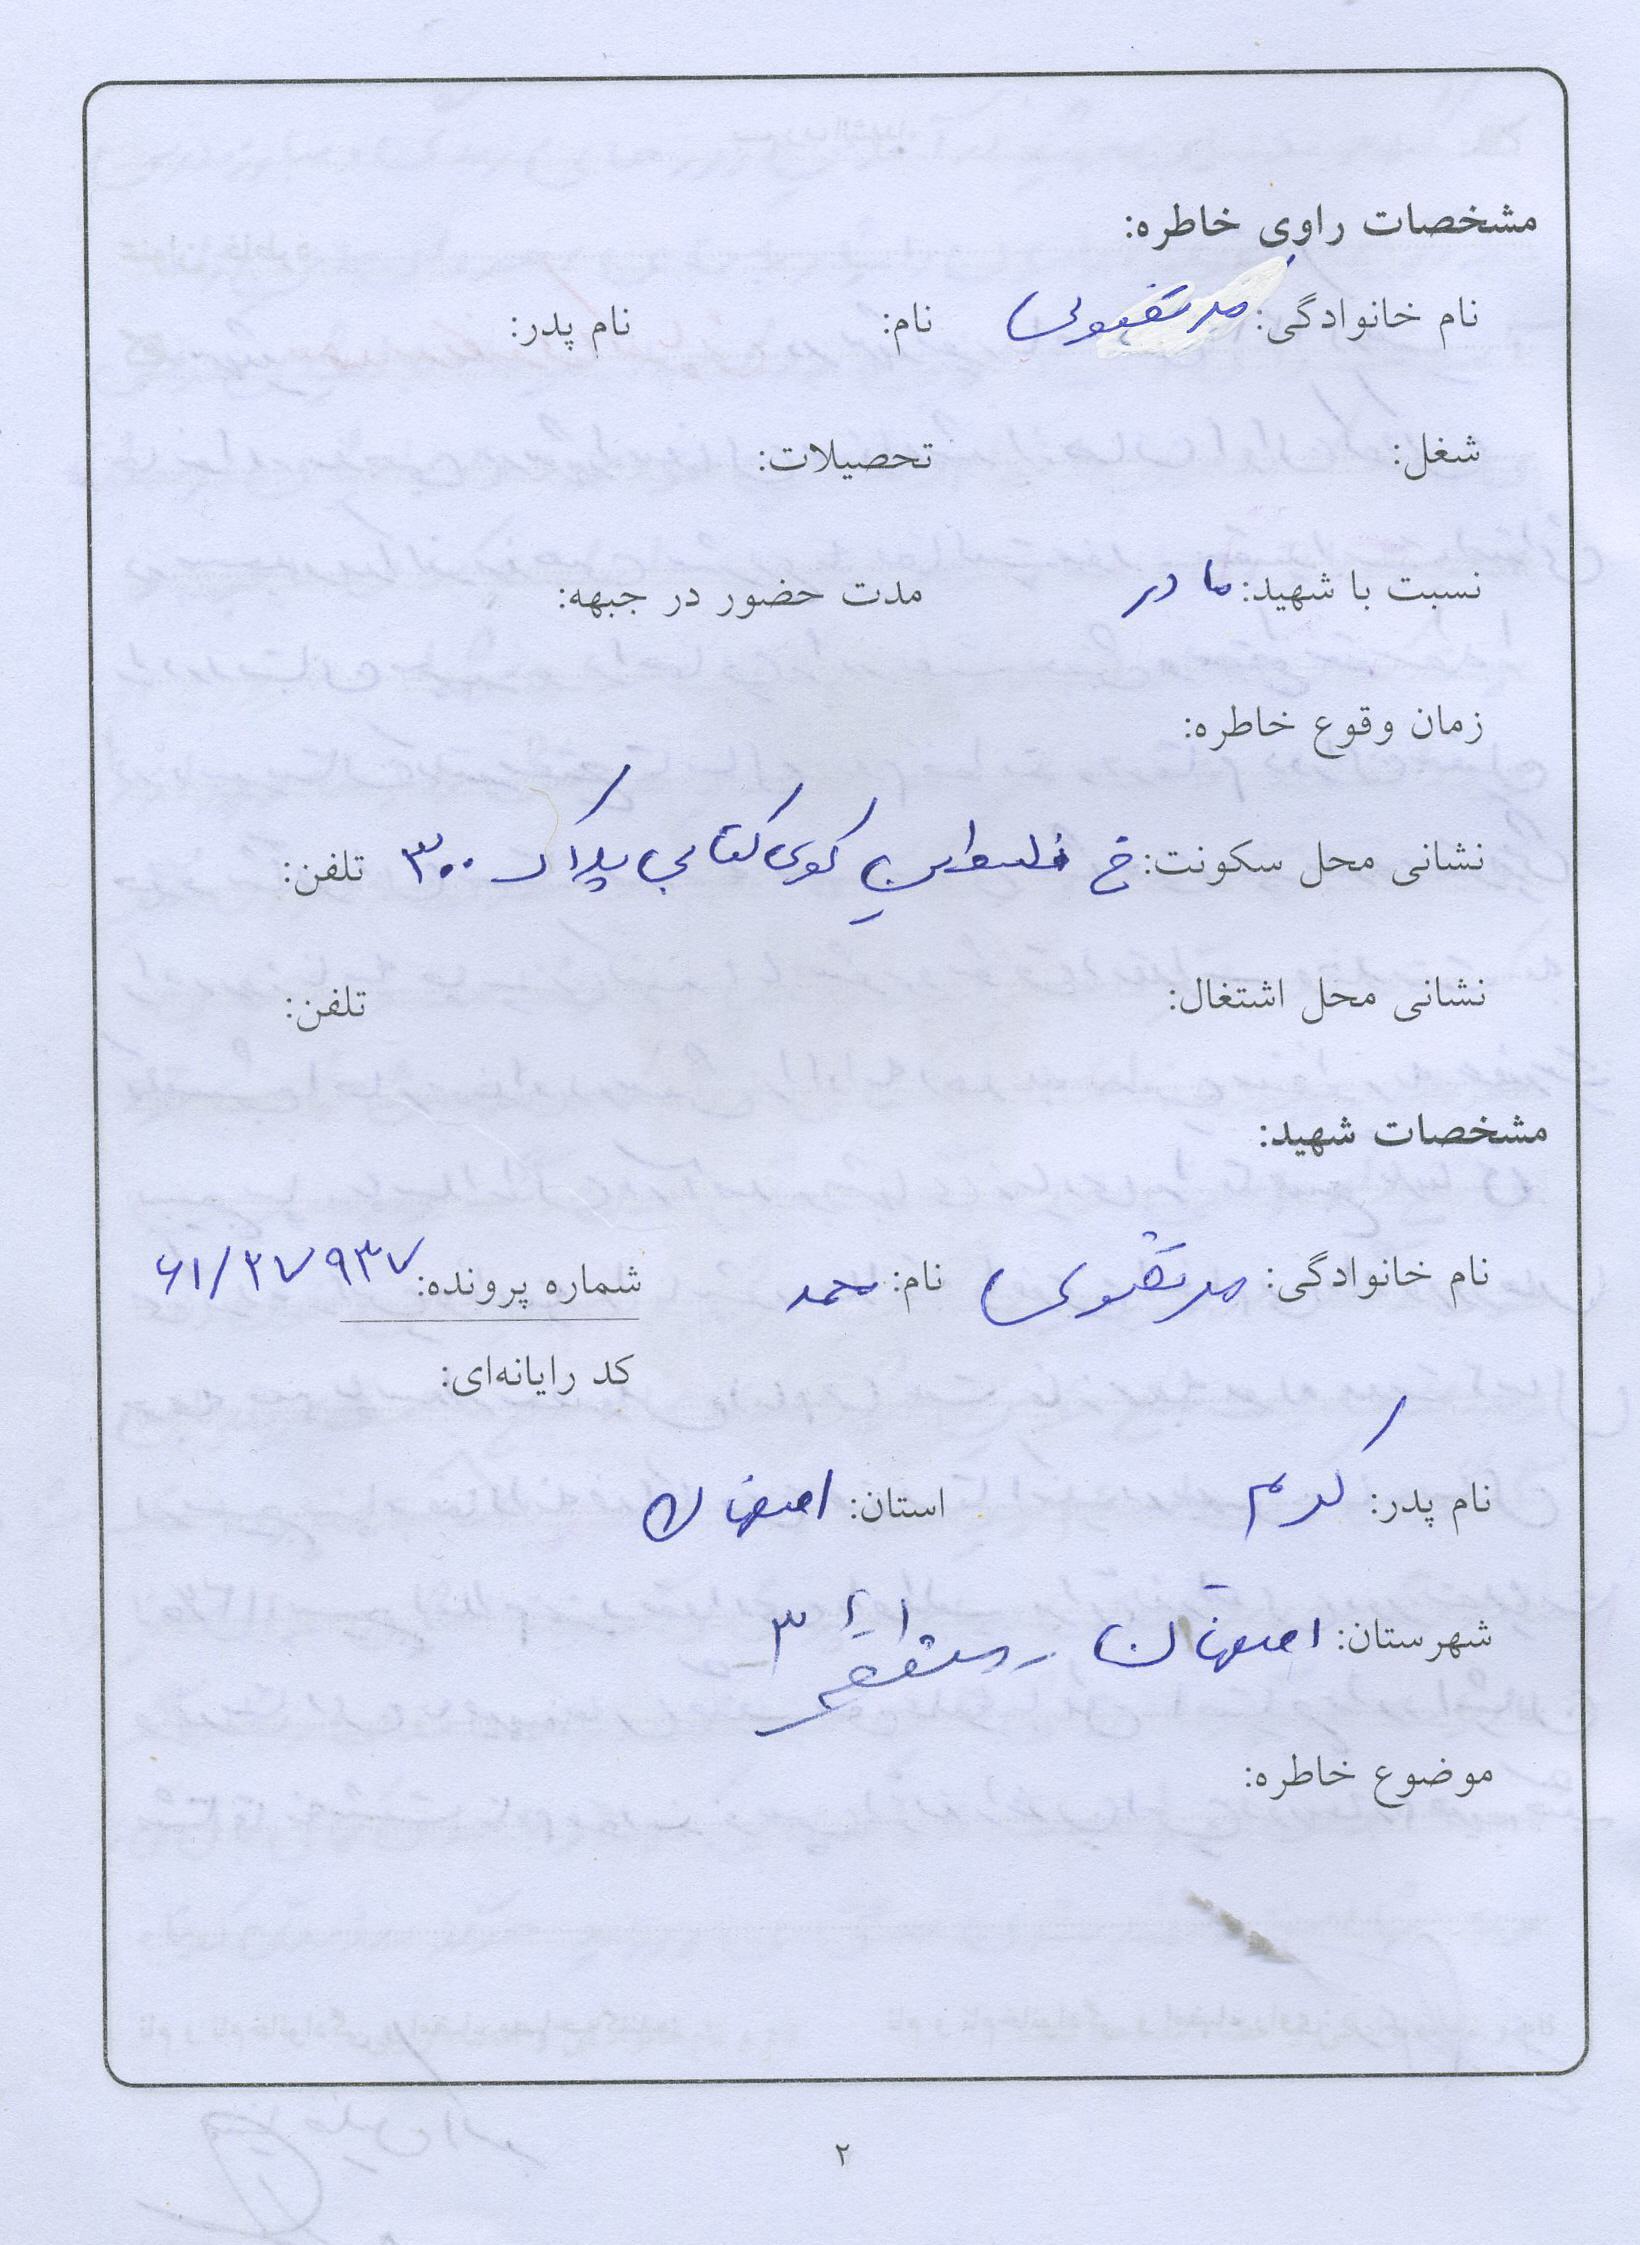 مشخصات راوی خاطره:
نام خانوادگی: مرتضوی نام: نام پدر:
شغل: تحصیلات:
نسبت با شهید: مادر مدت حضور در جبهه:
زمان وقوع خاطره:
نشانی محل سکونت: خ فلسطین کوی کتابی پلاک ۳۰۰ تلفن:
نشانی محل اشتغال: تلفن:
مشخصات شهید:
نام خانوادگی: مرتضوی نام: محمد شماره پرونده: ۶۱/۲۷۹۳۷
کد رایانه‌ای:
نام پدر: کرم استان: اصفهان
شهرستان: اصفهان - منطقه ۳
موضوع خاطره:
۲